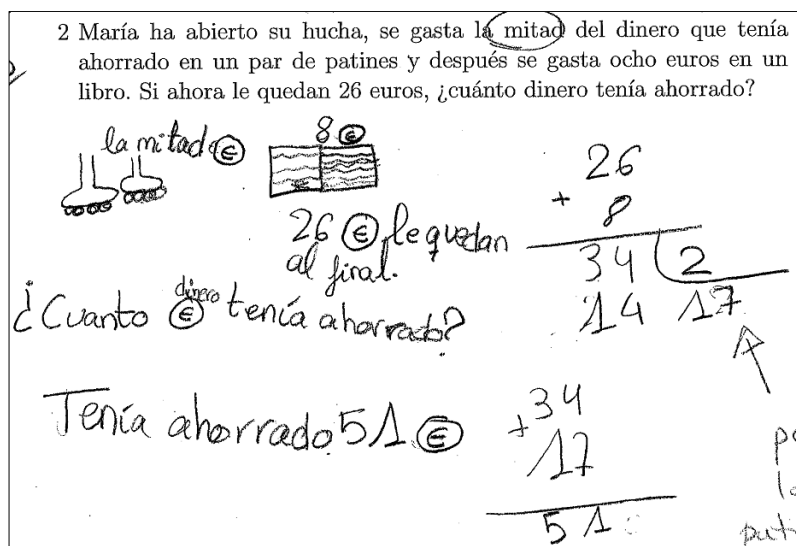 2 María ha abierto su hucha, se gasta la mitad del dinero que tenía
ahorrado en un par de patines y después se gasta ocho euros en un
libro. Si ahora le quedan 26 euros, ¿cuánto dinero tenía ahorrado?
la mitad €
8 €
26 € le quedan
al final.
¿Cuanto dinero € tenía ahorrado?
Tenía ahorrado 51 €
26
+ 8
34 2
14 17
34
+ 17
51